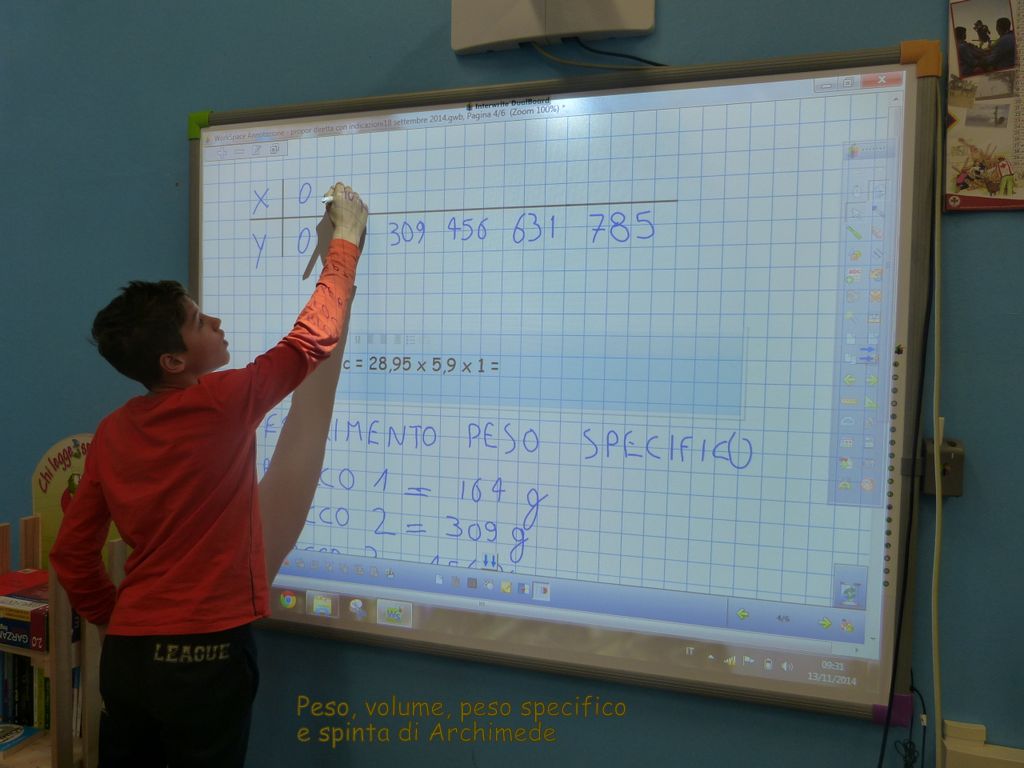 Interwrite DualBoard
WorkSpace Annotazione - propor diretta con indicazioni18 settembre 2014.gwb, Pagina 4/6 (Zoom 100%) *
X 0
Y 0 309 456 631 785
c = 28,95 x 5,9 x 1 =
PESO SPECIFICO
CO 1 = 164 g
CCO 2 = 309 g
4/6
IT
09:31
13/11/2014
Chi legge
GARZAN
2.0
LEAGUE
Peso, volume, peso specifico
e spinta di Archimede